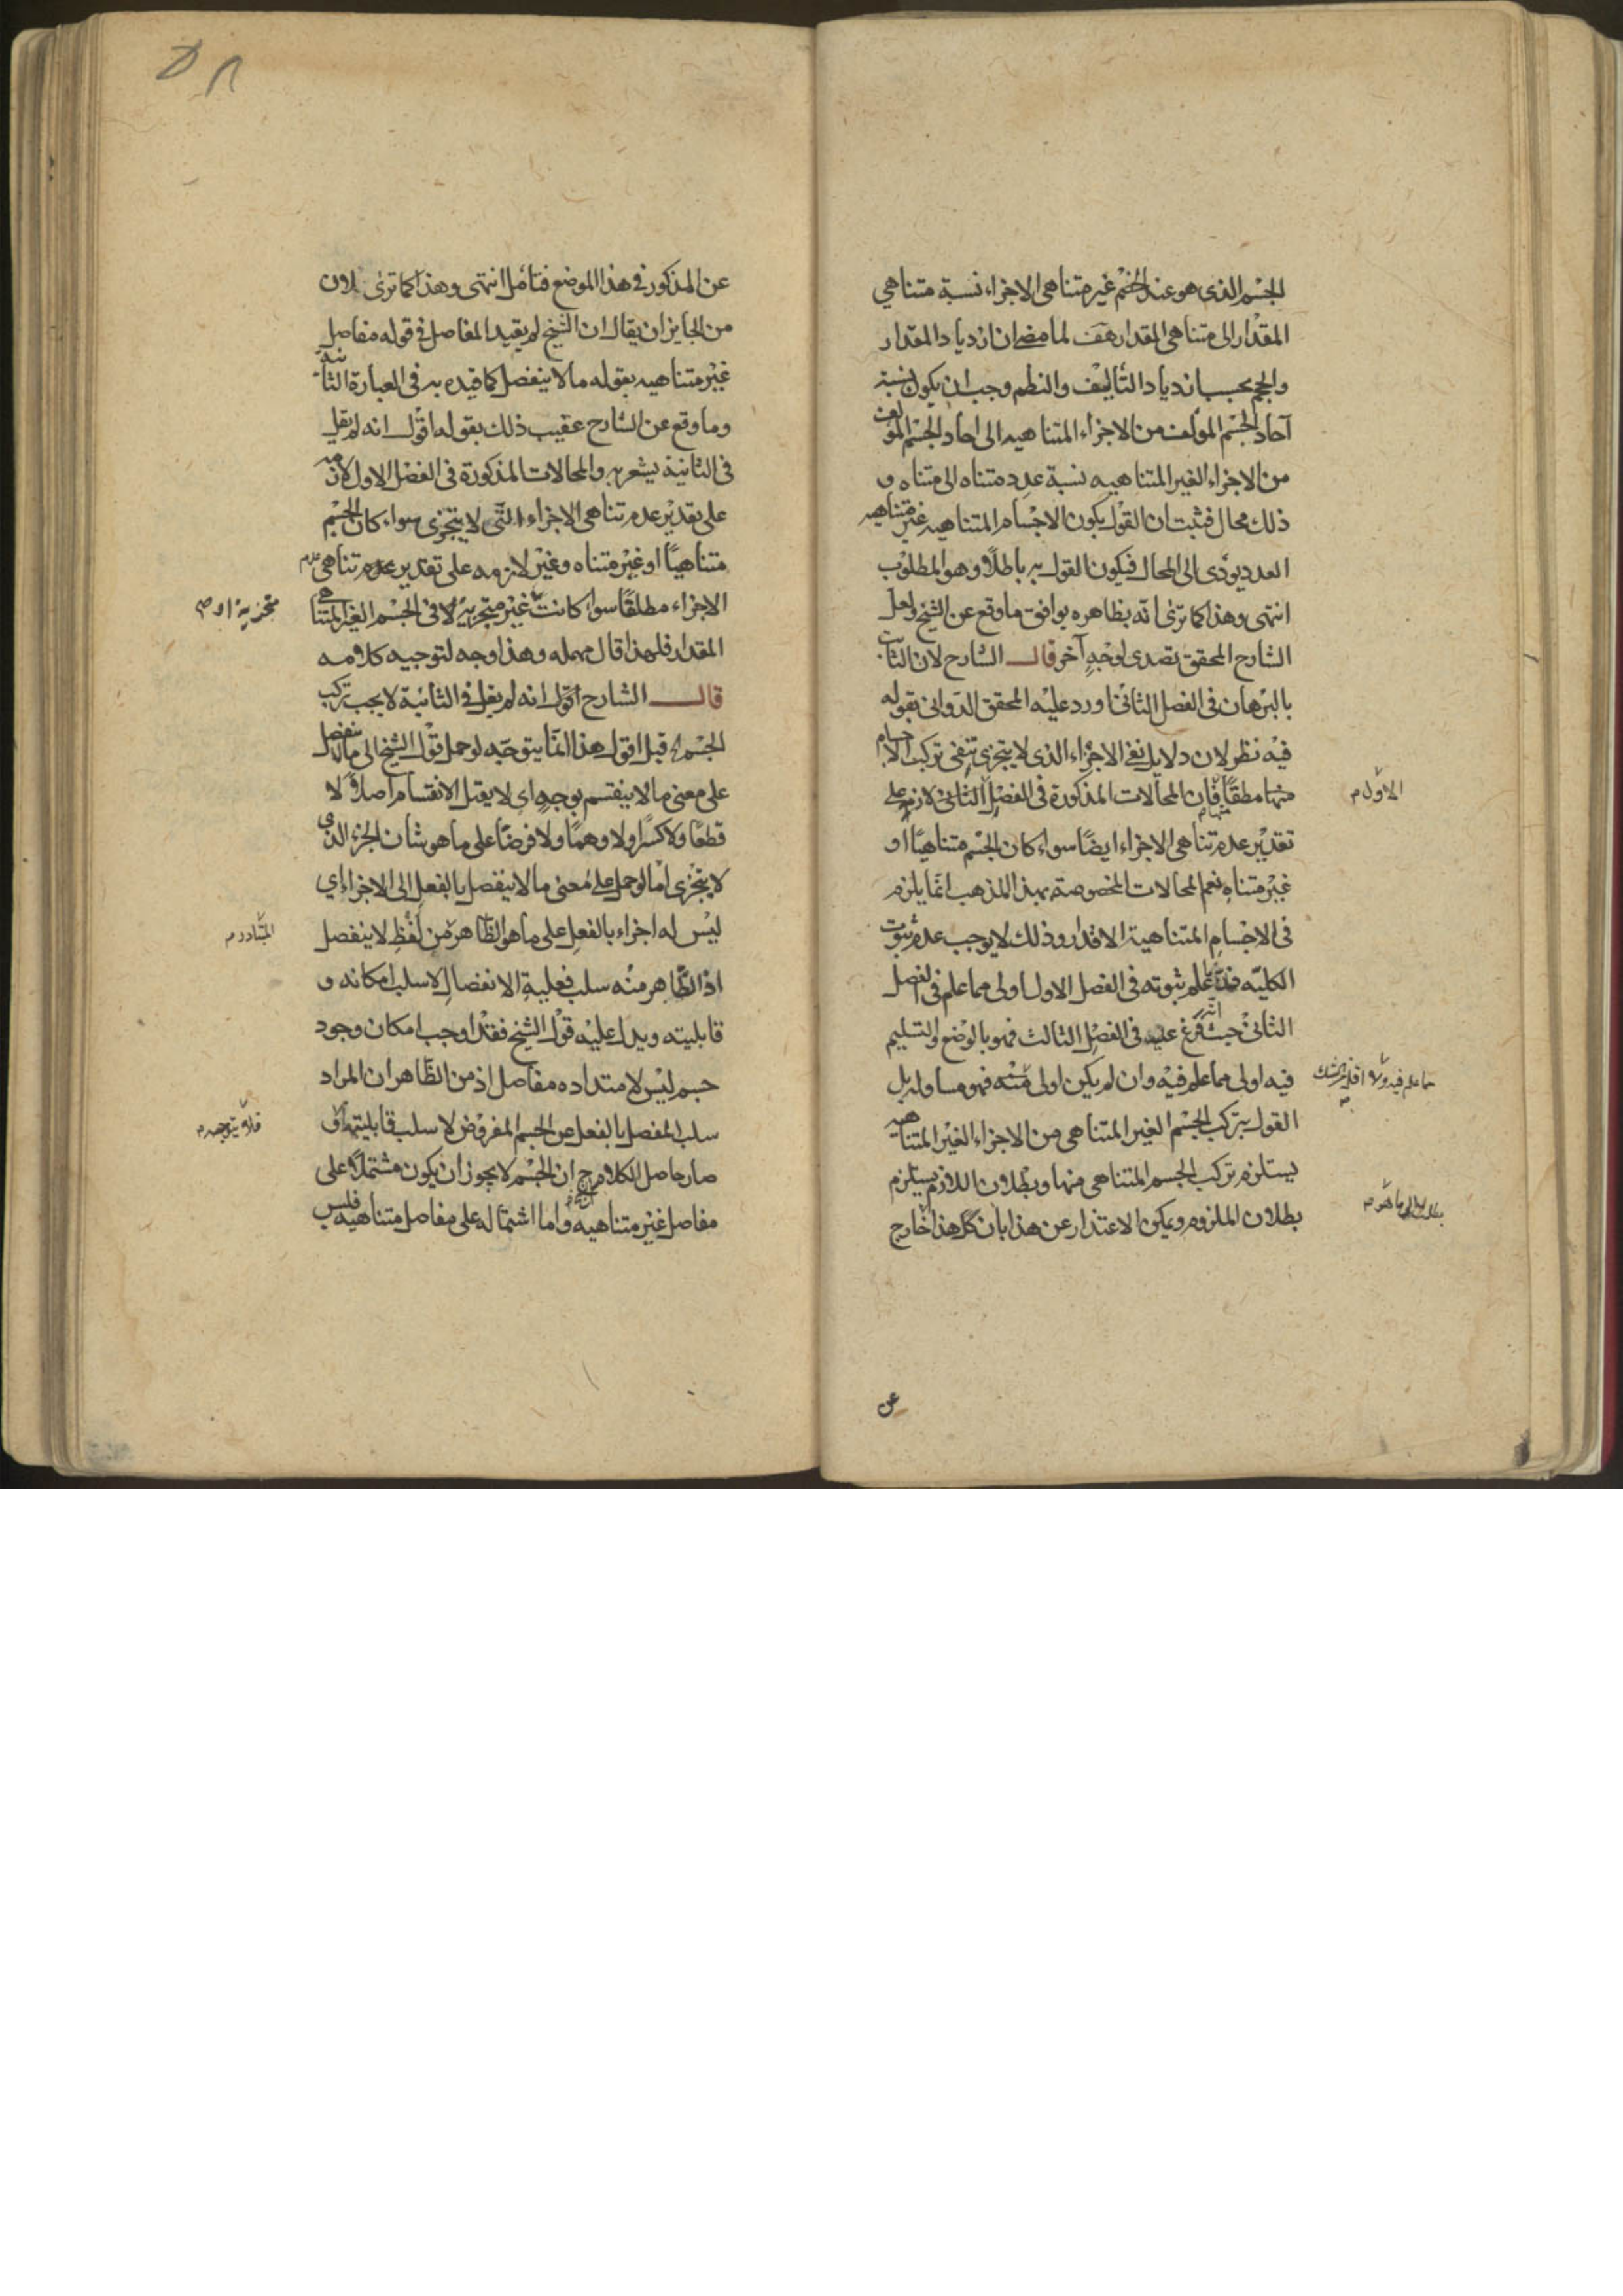 الجسم الذى هو عند الخصم غير متناهى الاجزاء نسبة متناهي
المقدار الى متناهى المقدار هف لما مضى ان ازدياد المقدار
والحجم بحسب ازدياد التأليف والنظم وجب ان يكون نسبة
آحاد الجسم المؤلف من الاجزاء المتناهيه الى احاد الجسم المؤلف
من الاجزاء الغير المتناهيه نسبة عدد متناه الى متناه و
ذلك محال فثبت ان القول بكون الاجسام المتناهيه غير متناهيه
العدد يودى الى المحال فيكون القول به باطلًا وهو المطلوب
انتهى وهذا كما ترى انه بظاهره يوافق ما وقع عن الشيخ ولعل
الشارح المحقق تصدى لوجهٍ آخر قال الشارح لان الثابت
بالبرهان فى الفصل الثانى اورد عليه المحقق الدوانى بقوله
فيه نظر لان دلايل نفى الاجزاء الذى لا يتجزى تنفى تركب الاجسام
منها مطلقًا فان المحالات المذكورة فى الفصل الثانى لازم على
الاول م
تقدير عدم تناهى الاجزاء ايضًا سواء كان الجسم متناهيًا او
غير متناهٍ نعم المحالات المخصوصة بهذا المذهب انما يلزم
فى الاجسام المتناهية الاقدار وذلك لا يوجب عدم ثبوت
الكليّه علم ثبوته فى الفصل الاول اولى مما علم فى الفصل
الثانى حيث فرغ عنه فى الفصل الثالث فهو بالوضع والتسليم
فيه اولى مما علم فيه وان لم يكن اولى منه فهو مساو له بل
مما علم فيه
القول بتركب الجسم الغير المتناهى من الاجزاء الغير المتناهيه
يستلزم تركب الجسم المتناهى منها وبطلان اللازم يستلزم
بطلان الملزوم ويمكن الاعتذار عن هذا بان كل هذا خارج
عن
عن المذكور فى هذا الموضع فتامل انتهى وهذا كما ترى لان
من الجايز ان يقال ان الشيخ لم يقيد المفاصل فى قوله مفاصل
غير متناهيه بقوله ما لا ينفصل كما قيده به فى العبارة الثانية
وما وقع عن الشارح عقيب ذلك بقوله اقول انه لم يقل
فى الثانية يشعر به والمحالات المذكورة فى الفصل الاول لازمه
على تقدير عدم تناهى الاجزاء التى لا يتجزى سواء كان الجسم
متناهيًا او غير متناه وغير لازمه على تقدير عدم تناهى
الاجزاء مطلقًا سواء كانت غير متجزية لا فى الجسم الغير المتناهى
متجزية او م
المقدار فلهذا قال مهمله وهذا وجه لتوجيه كلامه
قال الشارح اقول انه لم يقل فى الثانية لا يجب تركب
الجسم قيل اقول هذا انما يتوجه لو حمل قول الشيخ الى ما لا ينفصل
على معنى ما لا ينقسم بوجهٍ اى لا يقبل الانقسام اصلًا لا
قطعًا ولا كسرًا ولا وهمًا ولا فرضًا على ما هو شان الجزء الذى
لا يتجزى اما لو حمل على معنى ما لا ينفصل بالفعل الى الاجزاء اي
ليس له اجزاء بالفعل على ما هو الظاهر من لفظ لا ينفصل
المتبادر م
اذ الظاهر منه سلب فعلية الانفصال لا سلب امكانه و
قابليته ويدل عليه قول الشيخ فقد اوجب امكان وجود
جسم ليس لامتداده مفاصل اذ من الظاهر ان المراد
سلب المفصل بالفعل عن الجسم المفروض لا سلب قابليتها
فلا يتوجه م
صار حاصل الكلام ح ان الجسم لا يجوز ان يكون مشتملًا على
مفاصل غير متناهيه واما اشتماله على مفاصل متناهيه فليس